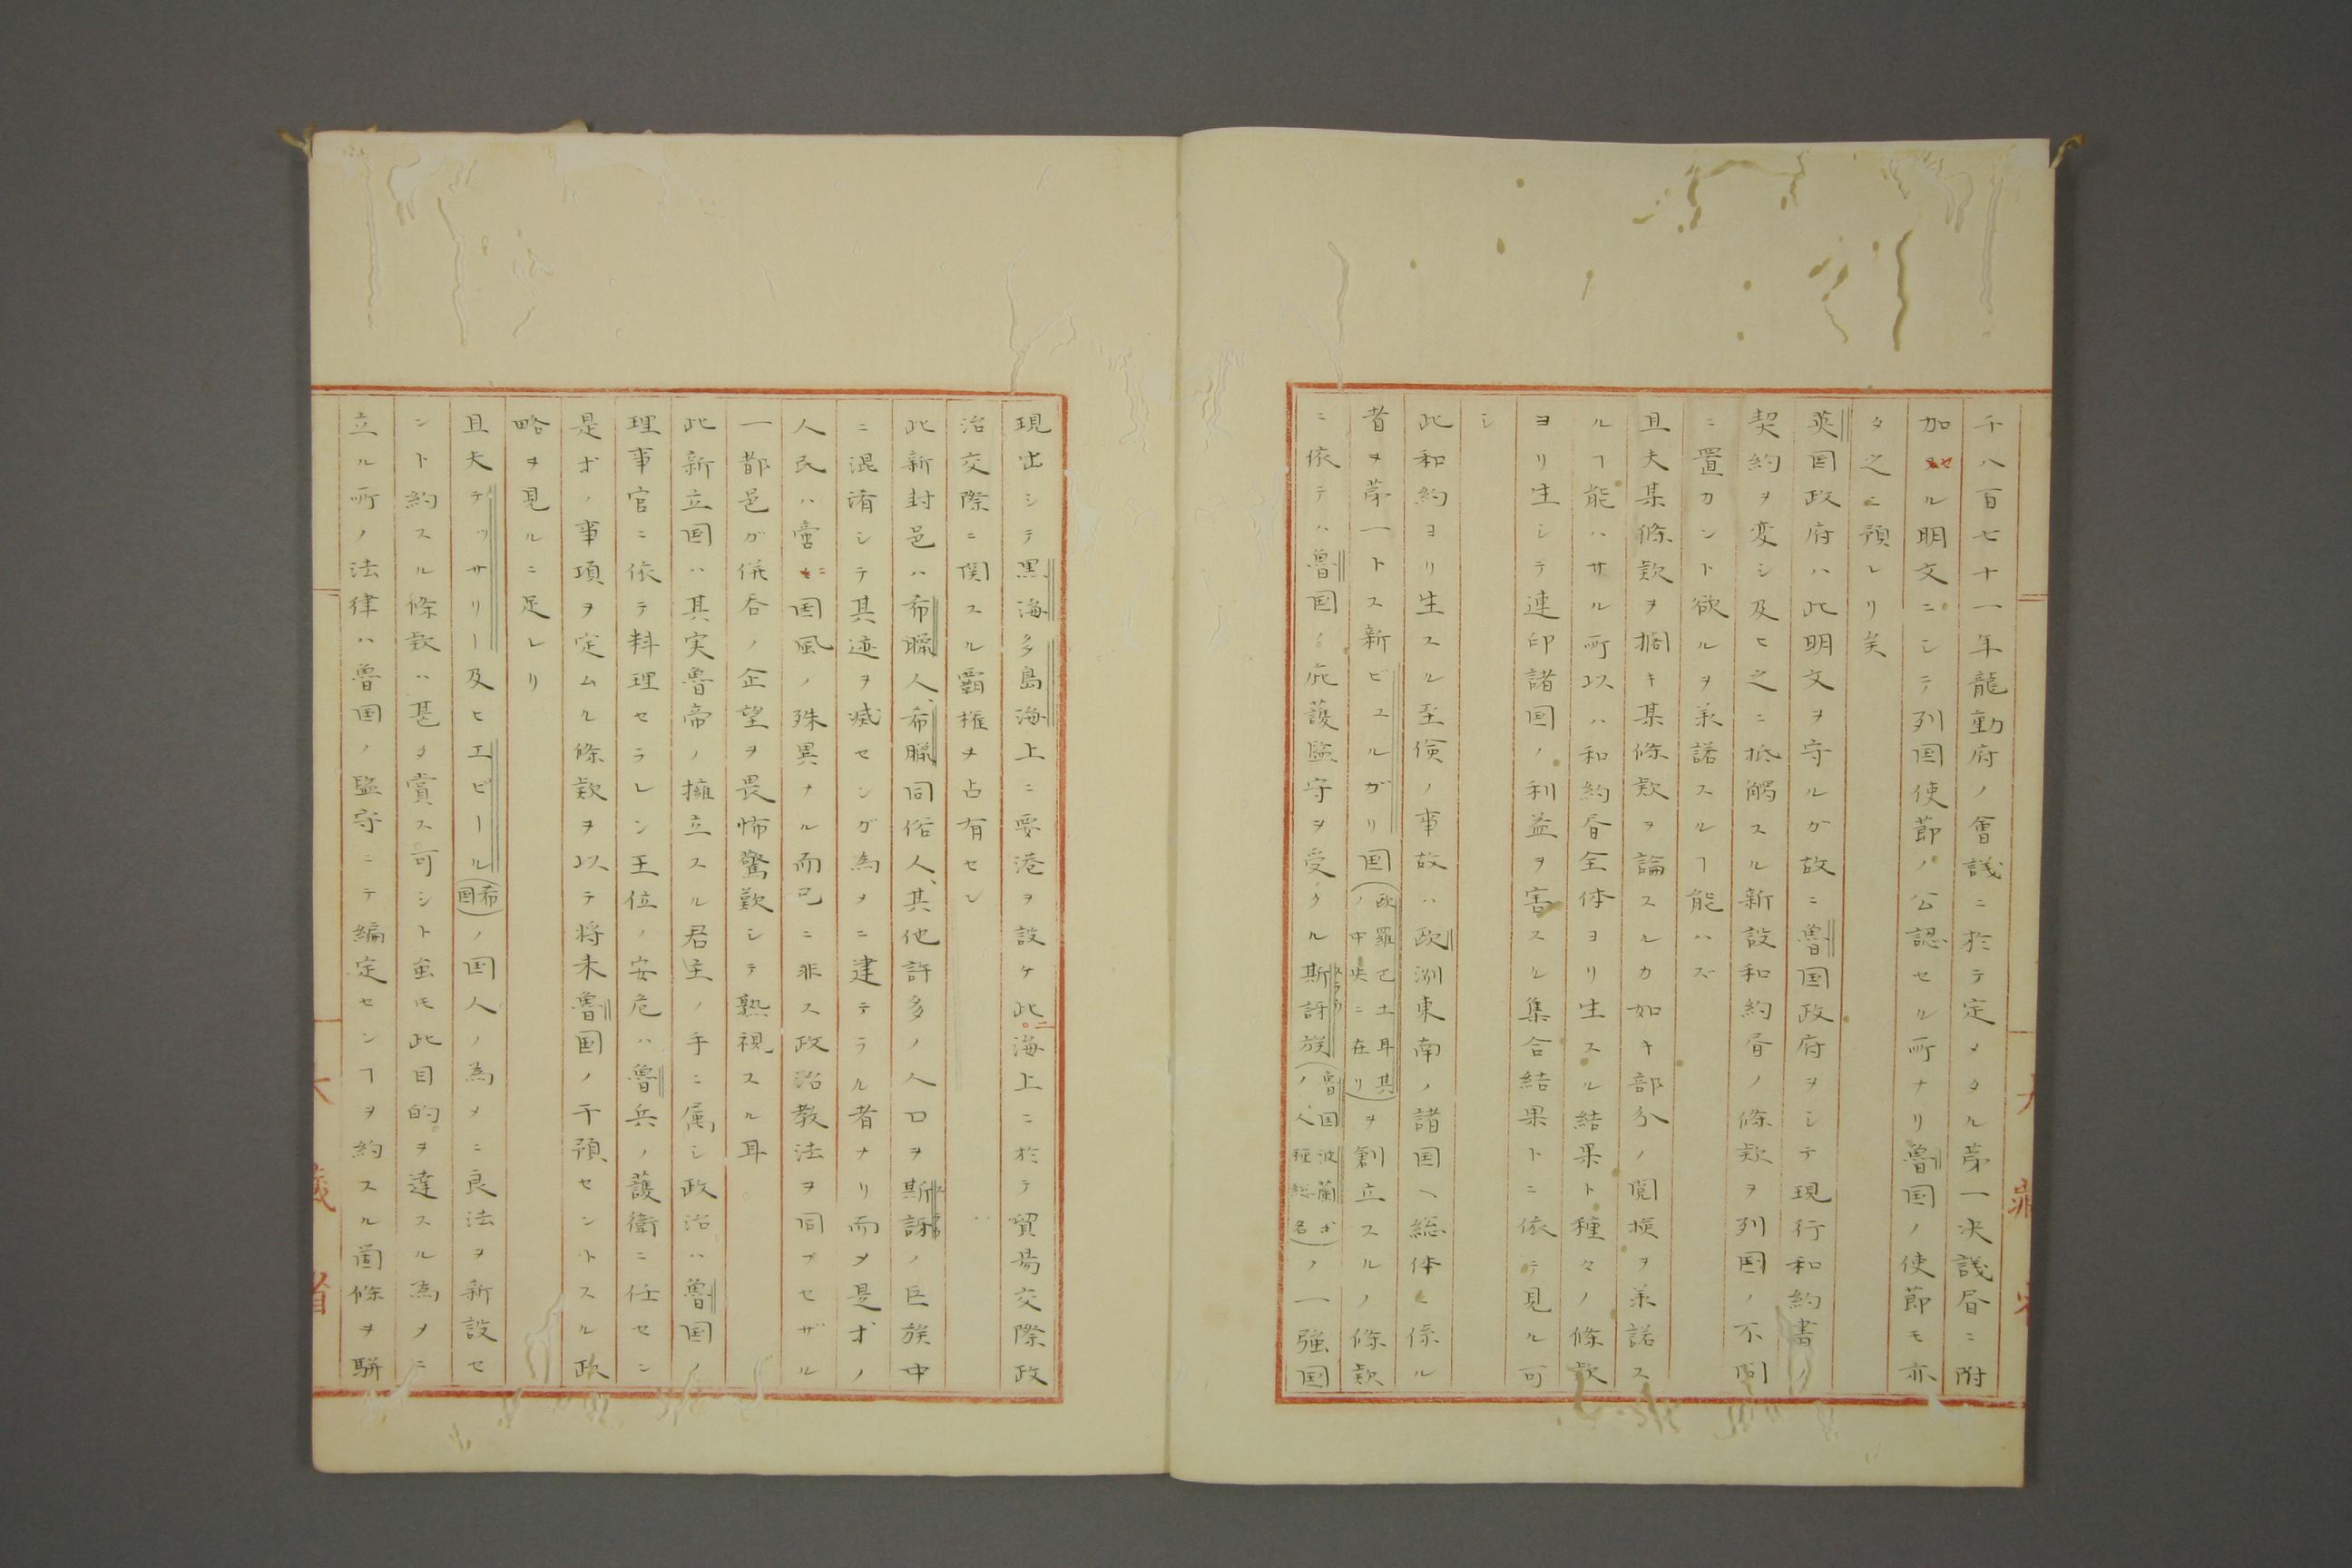 千八百七十一年龍動府ノ會議ニ於テ定メタル苐一決議昏ニ附
加セル明文ニシテ列国使節ノ公認セル所ナリ魯国ノ使節モ亦
タ之ニ預レリ矣
英国政府ハ此明文ヲ守ルガ故ニ魯国政府ヲシテ現行和約書ノ
契約ヲ変シ及ヒ之ニ抵觸スル新設和約昏ノ條欵ヲ列国ノ不問
ニ置カント欲ルヲ承諾スルヿ能ハズ
且夫某條欵ヲ擱キ某條欵ヲ論スルカ如キ部分ノ閲挨ヲ承諾ス
ルヿ能ハサル所以ハ和約昏全体ヨリ生スル結果ト種々ノ條欵
ヨリ生シテ連印諸国ノ利益ヲ害スル集合結果トニ依テ見ル可
シ
此和約ヨリ生スル至倹ノ事故ハ欧洲東南ノ諸国ヘ総体ニ係ル
者ヲ苐一トス新ビュルガリ国(欧羅巴土耳其ノ中央ニ在リ)ヲ創立スルノ條欵
ニ依テハ魯国ノ庇護監守ヲ受クル斯訝族(魯国波蘭オノ人種総名)ノ一強国
現出シテ黒海多島海上ニ要港ヲ設ケ此ニ海上ニ於テ貿易交際政
治交際ニ関スル覇権ヲ占有セン
此新封邑ハ希臘人、希臘同俗人、其他許多ノ人口ヲ斯訝ノ巨族中
ニ混淆シテ其迹ヲ滅セシガ為メニ建テラル者ナリ而メ是オノ
人民ハ啻ニ国風ノ殊異ナル而己ニ非ス政治教法ヲ同フセザル
一都邑ガ併呑ノ企望ヲ畏怖驚歎シテ熟視スル耳
此新立国ハ其実魯帝ノ擁立スル君主ノ手ニ属シ政治ハ魯国ノ
理事官ニ依テ料理セラレン王位ノ安危ハ魯兵ノ護衛ニ任セン
是オノ事項ヲ定ムル條欵ヲ以テ将来魯国ノ干預セントスル政
略ヲ見ルニ足レリ
且夫テッサリー及ヒエピール(希国)ノ国人ノ為メニ良法ヲ新設セ
ント約スル條欵ハ甚タ賞ス可シト虽モ此目的ヲ達スル為メニ
立ル所ノ法律ハ魯国ノ監守ニテ編定センヿヲ約スル箇條ヲ駢